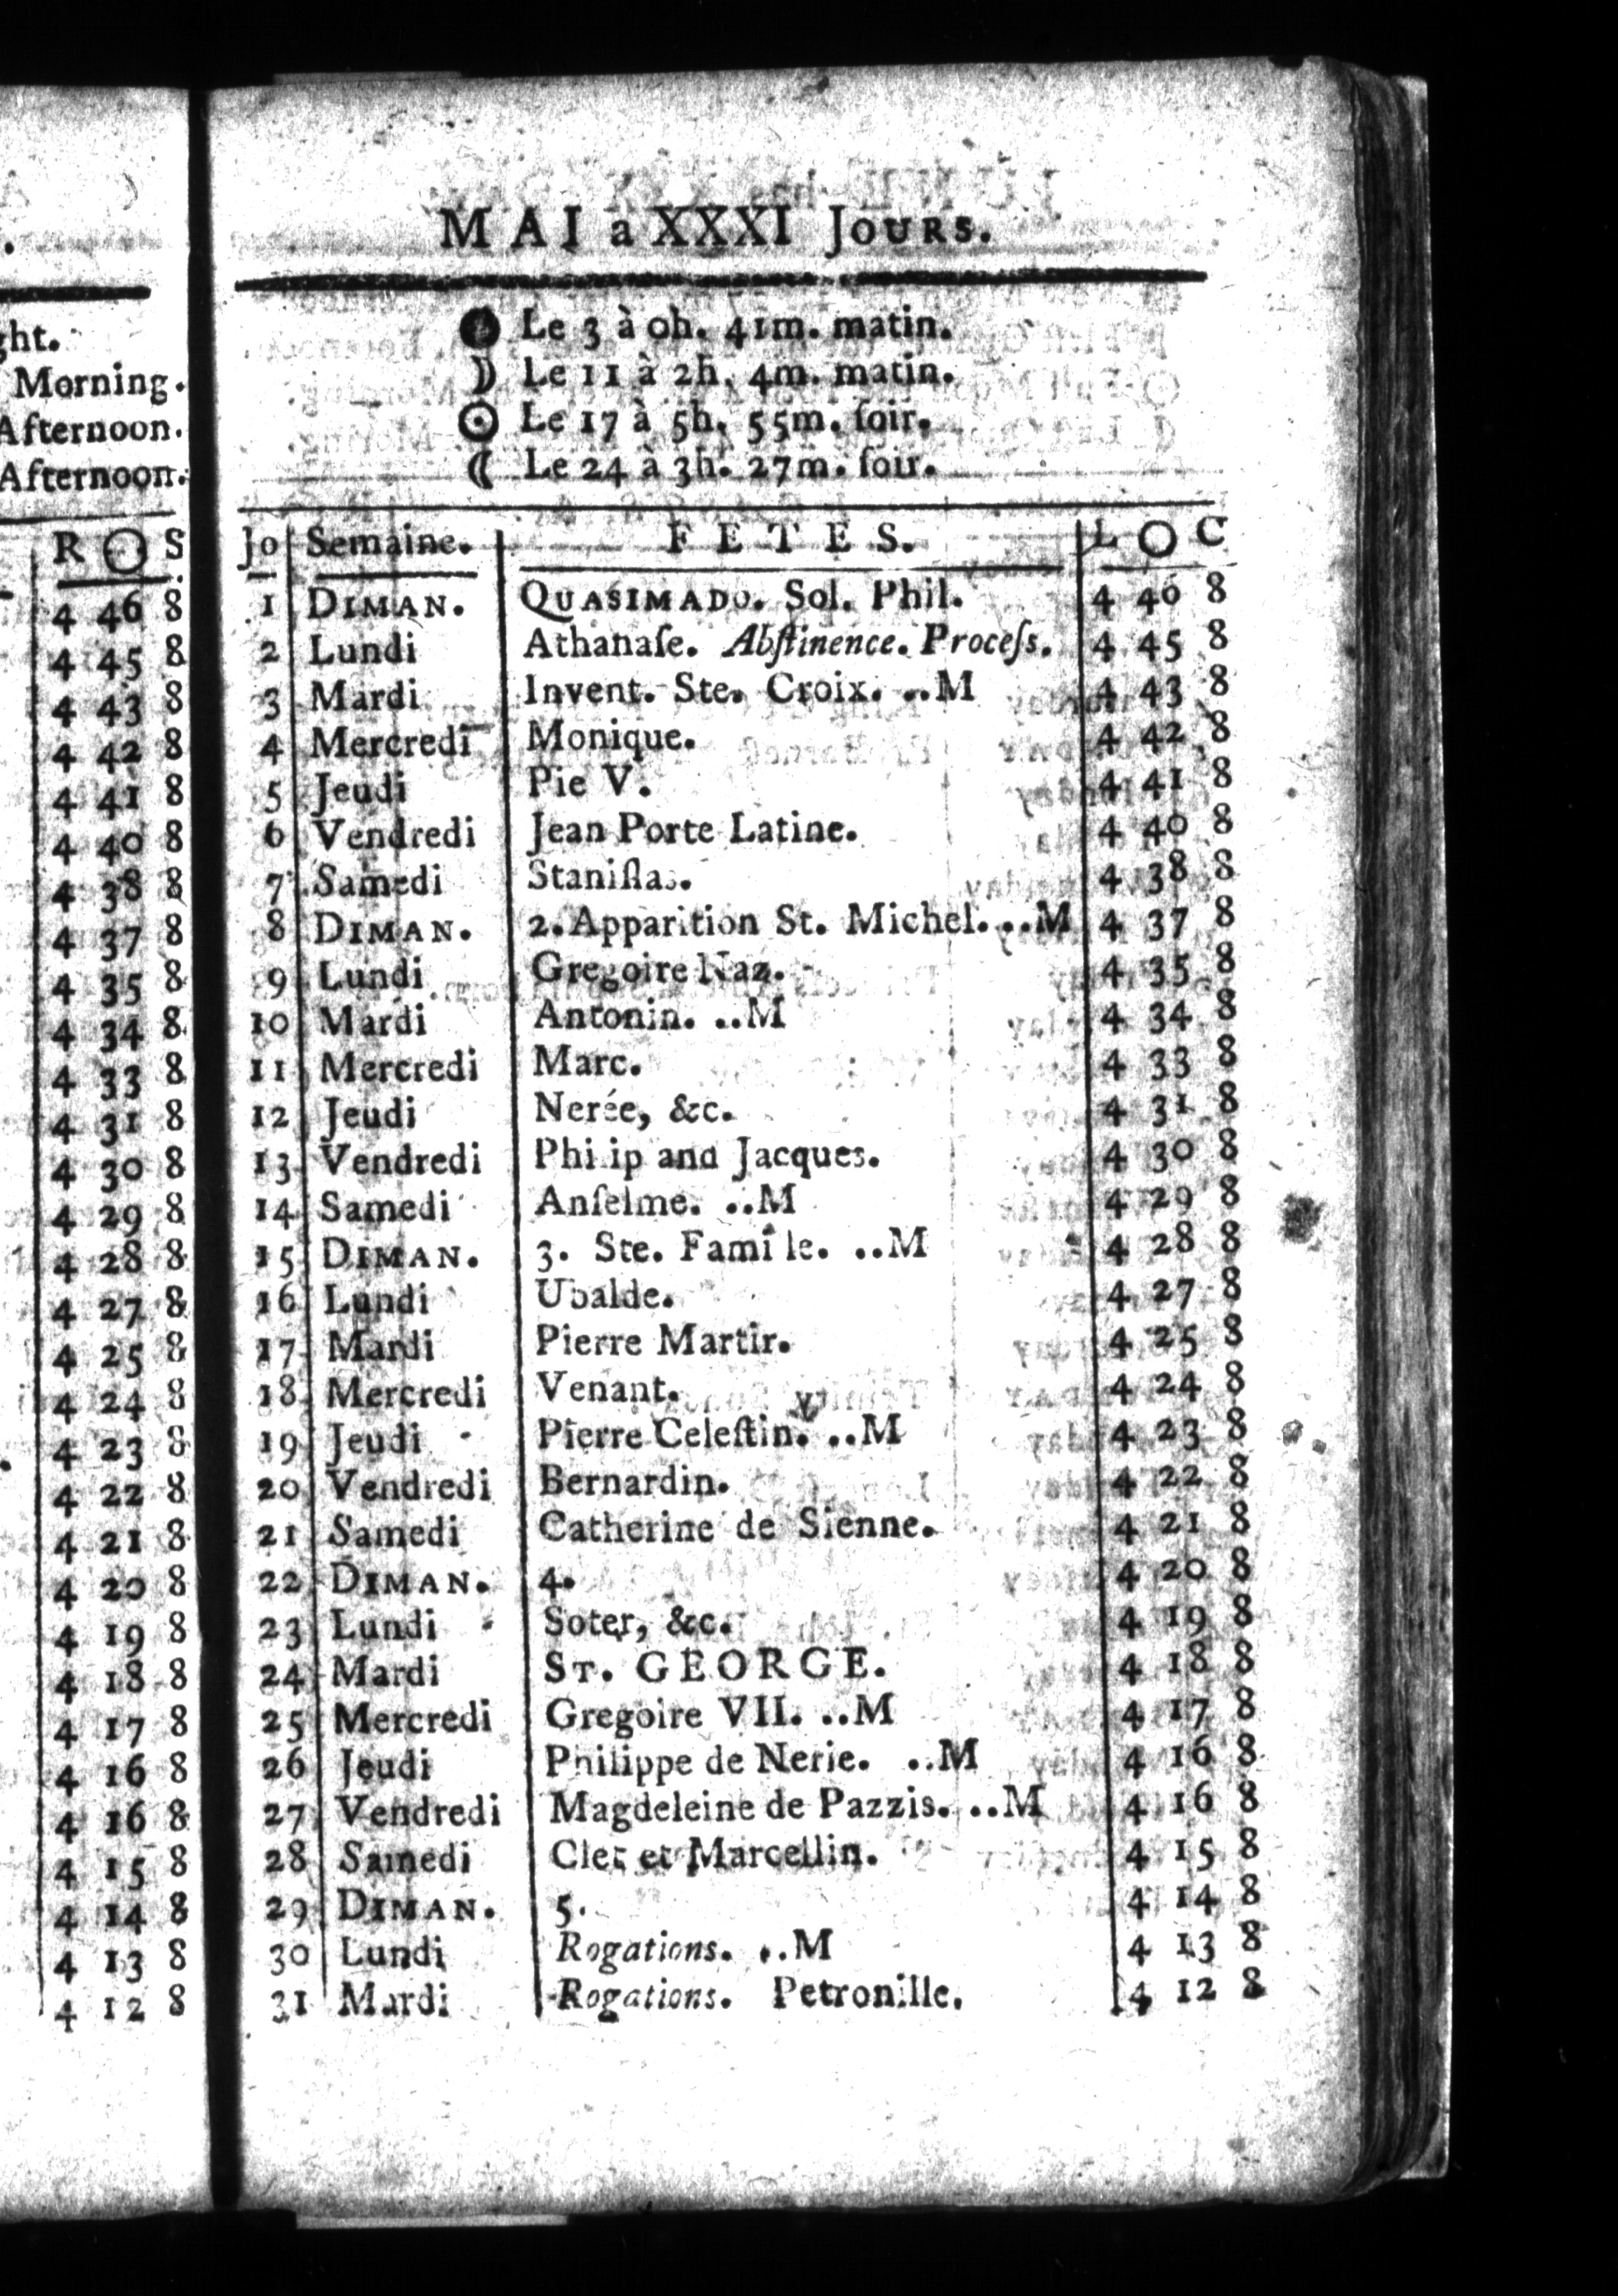 ght.
Morning.
Afternoon.
Afternoon.
R O S
4 46 8
4 45 8
4 43 8
4 42 8
4 41 8
4 40 8
4 38 8
4 37 8
4 35 8
4 34 8
4 33 8
4 31 8
4 30 8
4 29 8
4 28 8
4 27 8
4 25 8
4 24 8
4 23 8
4 22 8
4 21 8
4 20 8
4 19 8
4 18 8
4 17 8
4 16 8
4 16 8
4 15 8
4 14 8
4 13 8
4 12 8
MAI a XXXI JOURS.
● Le 3 à 0h. 41m. matin.
☽ Le 11 à 2h. 4m. matin.
☉ Le 17 à 5h. 55m. ſoir.
☾ Le 24 à 3h. 27m. ſoir.
Jo Semaine. FETES. L O C
1 DIMAN. QUASIMADO. Sol. Phil. 4 46 8
2 Lundi Athanaſe. Abſtinence. Proceſs. 4 45 8
3 Mardi Invent. Ste. Croix. ..M 4 43 8
4 Mercredi Monique. 4 42 8
5 Jeudi Pie V. 4 41 8
6 Vendredi Jean Porte Latine. 4 40 8
7 Samedi Staniſlas. 4 38 8
8 DIMAN. 2. Apparition St. Michel. ..M 4 37 8
9 Lundi Gregoire Naz. 4 35 8
10 Mardi Antonin. ..M 4 34 8
11 Mercredi Marc. 4 33 8
12 Jeudi Nerée, &c. 4 31 8
13 Vendredi Philip and Jacques. 4 30 8
14 Samedi Anſelme. ..M 4 29 8
15 DIMAN. 3. Ste. Famille. ..M 4 28 8
16 Lundi Ubalde. 4 27 8
17 Mardi Pierre Martir. 4 25 8
18 Mercredi Venant. 4 24 8
19 Jeudi Pierre Celeſtin. ..M 4 23 8
20 Vendredi Bernardin. 4 22 8
21 Samedi Catherine de Sienne. 4 21 8
22 DIMAN. 4. 4 20 8
23 Lundi Soter, &c. 4 19 8
24 Mardi ST. GEORGE. 4 18 8
25 Mercredi Gregoire VII. ..M 4 17 8
26 Jeudi Philippe de Nerie. ..M 4 16 8
27 Vendredi Magdeleine de Pazzis. ..M 4 16 8
28 Samedi Clet et Marcellin. 4 15 8
29 DIMAN. 5. 4 14 8
30 Lundi Rogations. ..M 4 13 8
31 Mardi Rogations. Petronille. 4 12 8